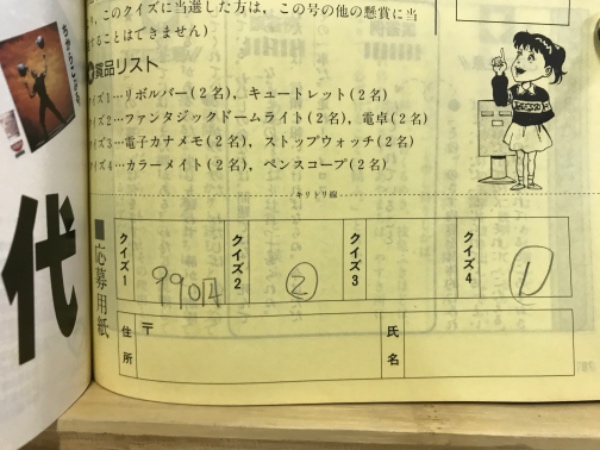 、このクイズに当選した方は，この号の他の懸賞に当
することはできません）
賞品リスト
クイズ1…リボルバー(2名)，キュートレット(2名)
クイズ2…ファンタジックドームライト(2名)，電卓(2名)
クイズ3…電子カナメモ(2名)，ストップウォッチ(2名)
クイズ4…カラーメイト(2名)，ペンスコープ(2名)
キリトリ線
■応募用紙
クイズ1
クイズ2
②
クイズ3
クイズ4
住所
〒
氏名
代